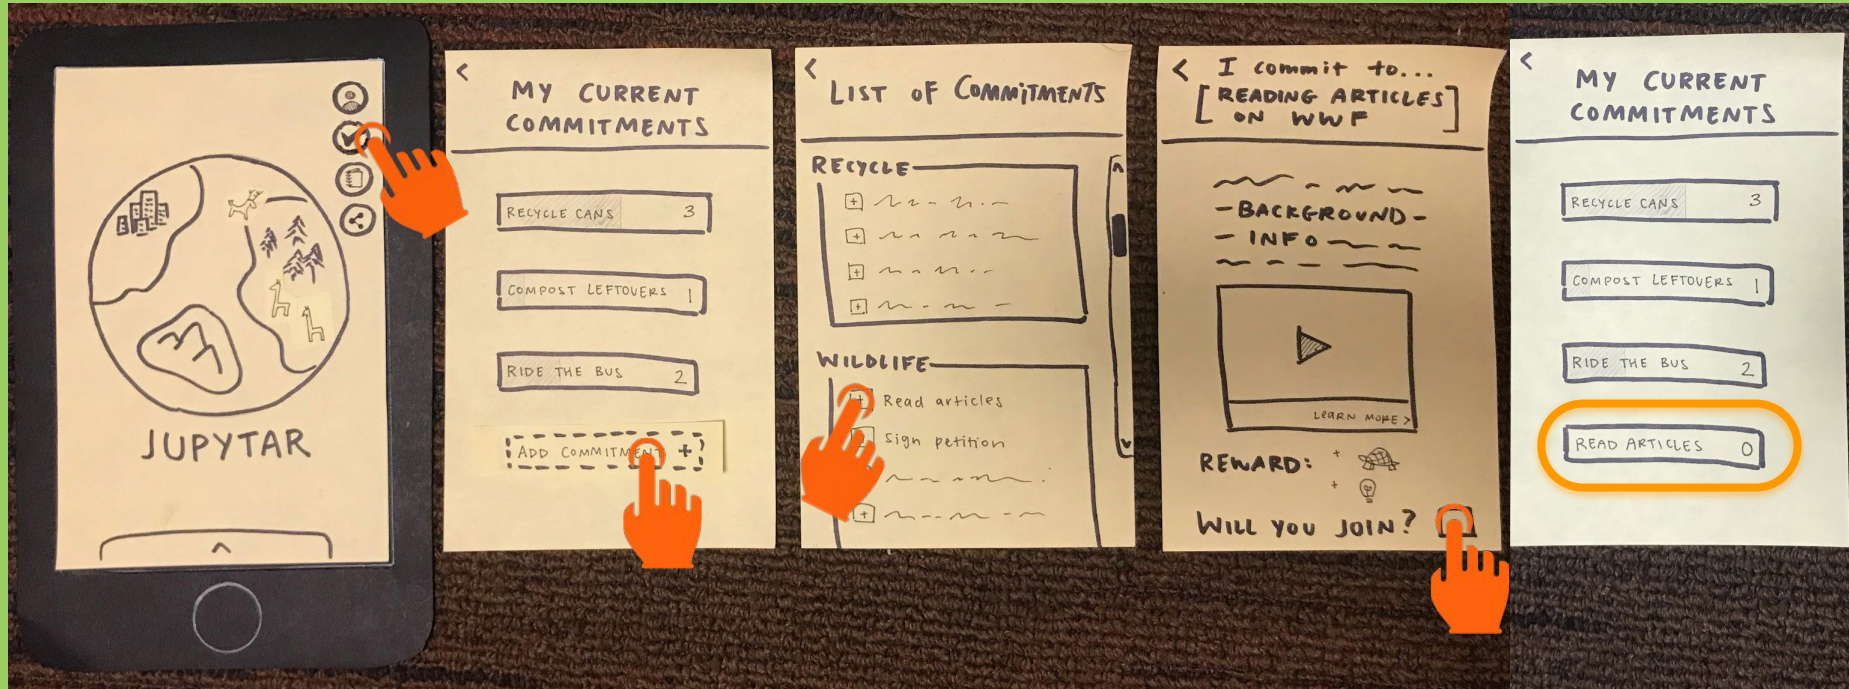 JUPYTAR
<
MY CURRENT
COMMITMENTS
RECYCLE CANS 3
COMPOST LEFTOVERS 1
RIDE THE BUS 2
ADD COMMITMENT +
<
LIST OF COMMITMENTS
RECYCLE
+
+
+
+
WILDLIFE
+ Read articles
Sign petition
+
< I commit to...
[READING ARTICLES
ON WWF]
- BACKGROUND -
- INFO -
LEARN MORE >
REWARD: +
+
WILL YOU JOIN?
<
MY CURRENT
COMMITMENTS
RECYCLE CANS 3
COMPOST LEFTOVERS 1
RIDE THE BUS 2
READ ARTICLES 0